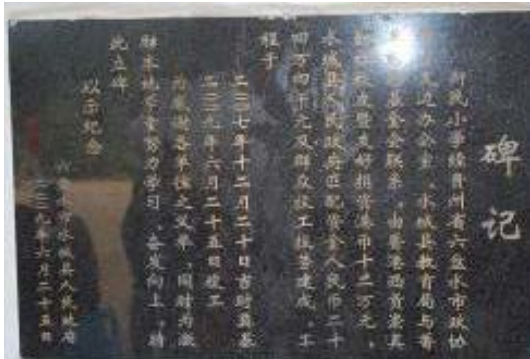 碑记
御民小学经贵州省六盘水市政协
文边办公室、水城县教育局与香
基金会联系,由香港西贡崇真
暨友好捐资港币十二万元,
水城县人民政府匹配资金人民币二十
四万四千元及群众投工投劳建成。工
程于
二〇〇七年十二月二十日吉时奠基
二〇〇九年六月二十五日竣工
为感谢各单位之义举,同时为激
励本地学童努力学习、奋发向上,特
此立碑
以示纪念
六盘水市水城县人民政府
二〇〇九年六月二十五日